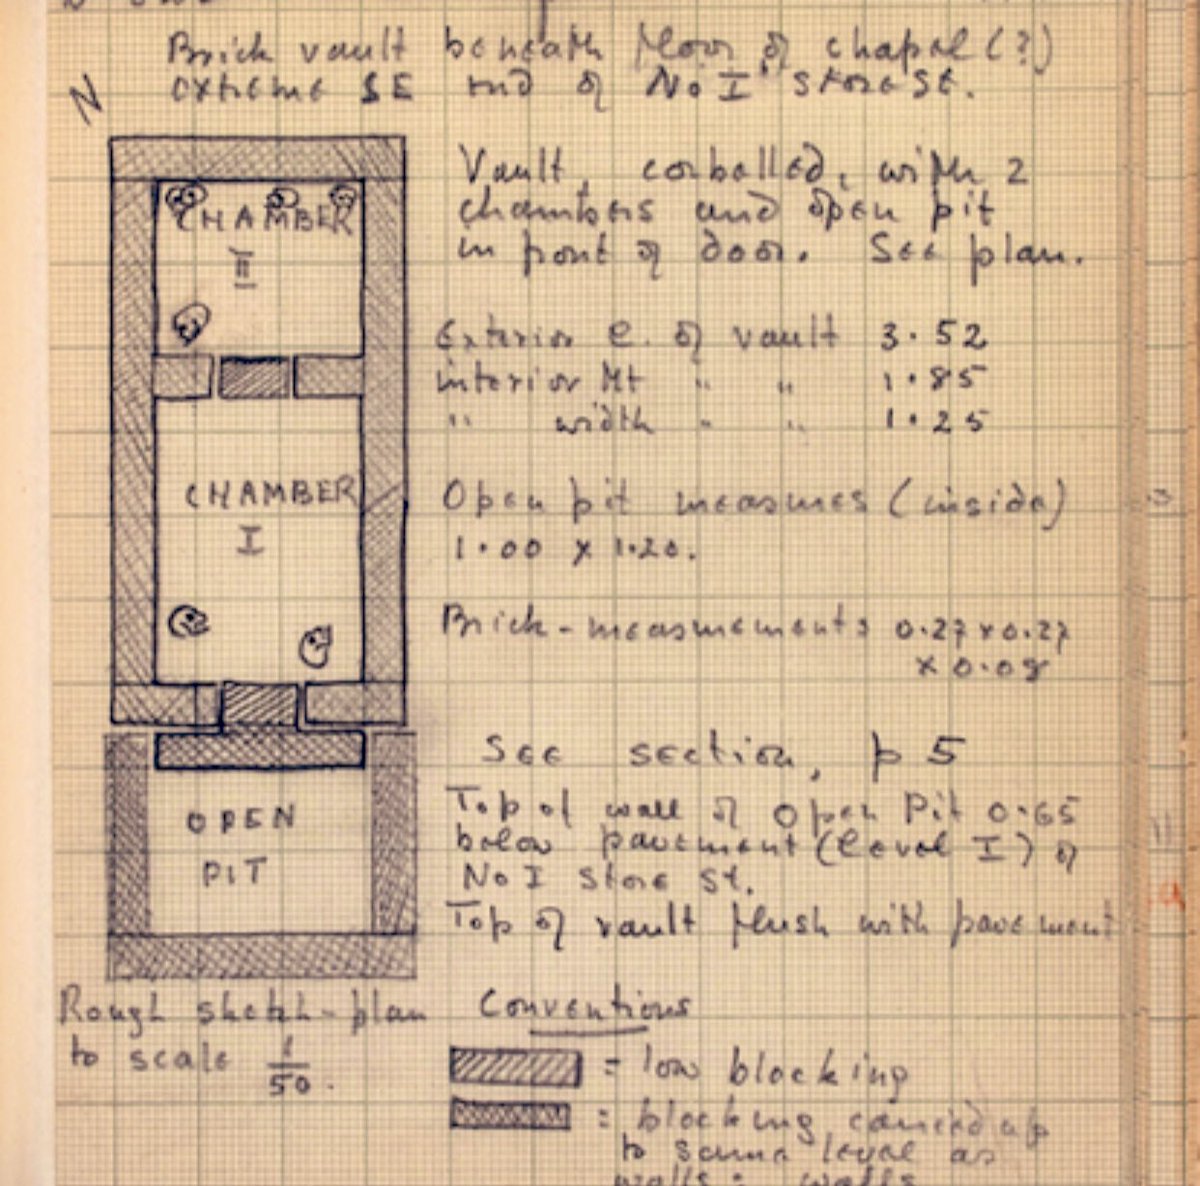 Brick vault beneath floor of chapel (?)
extreme SE end of No I Store St.
N
CHAMBER
II
CHAMBER
I
OPEN
PIT
Vault, corballed, with 2
chambers and open pit
in front of door. See plan.
Exterior l. of vault 3.52
interior Ht " " 1.85
" width " " 1.25
Open pit measures (inside)
1.00 x 1.20.
Brick-measurements 0.27 x 0.27
x 0.08
See section, p 5
Top of wall of Open Pit 0.65
below pavement (level I) of
No I Store St.
Top of vault flush with pavement
Rough sketch-plan
to scale 1/50.
Conventions
= low blocking
= blocking carried up
to same level as
walls: walls